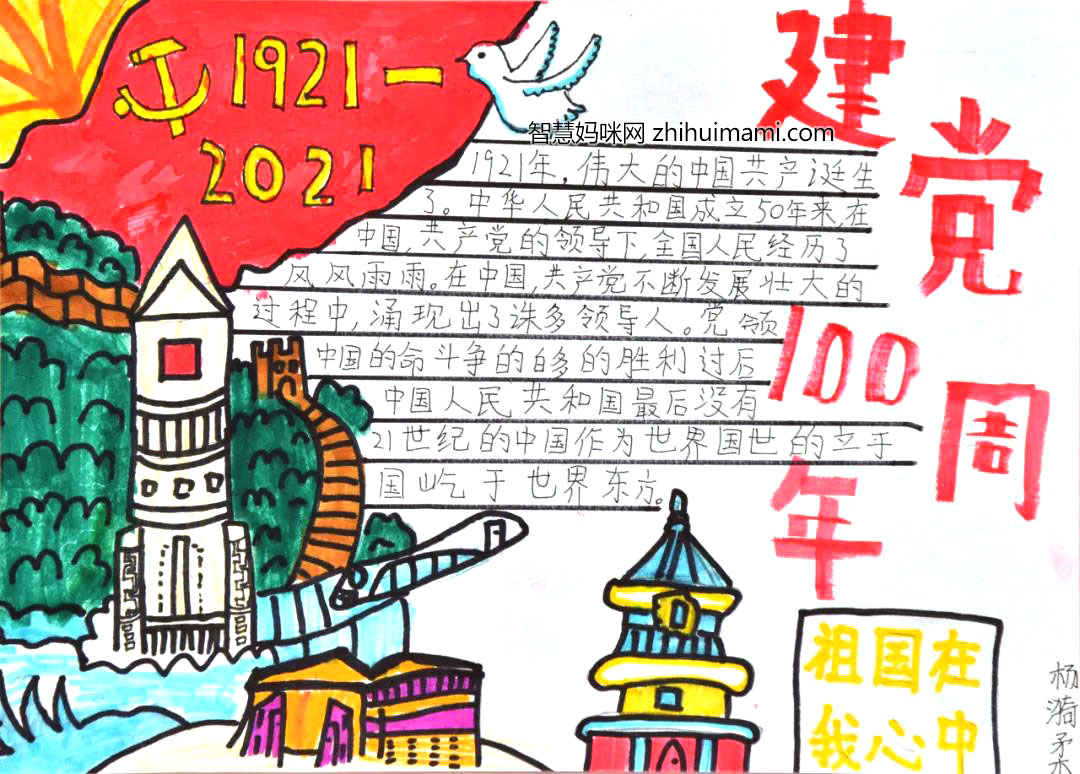 1921-
2021
智慧妈咪网 zhihuimami.com
建党100周年
1921年,伟大的中国共产诞生
了。中华人民共和国成立50年来,在
中国,共产党的领导下,全国人民经历了
风风雨雨。在中国,共产党不断发展壮大的
过程中,涌现出了诛多领导人。党领
中国的命斗争的自多的胜利过后
中国人民共和国最后没有
21世纪的中国作为世界国世的立于
国屹于世界东方。
祖国在
我心中
杨漪柔